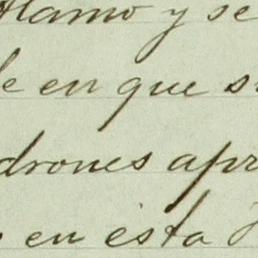 Alamo y se
de en que s
drones apr
en esta